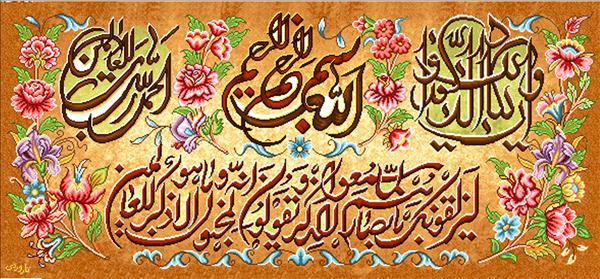 وان يكاد الذين كفروا
بسم الله الرحمن الرحيم
الحمد لله رب العالمين
ليزلقونك بابصارهم لما سمعوا الذكر ويقولون انه لمجنون وما هو الا ذكر للعالمين